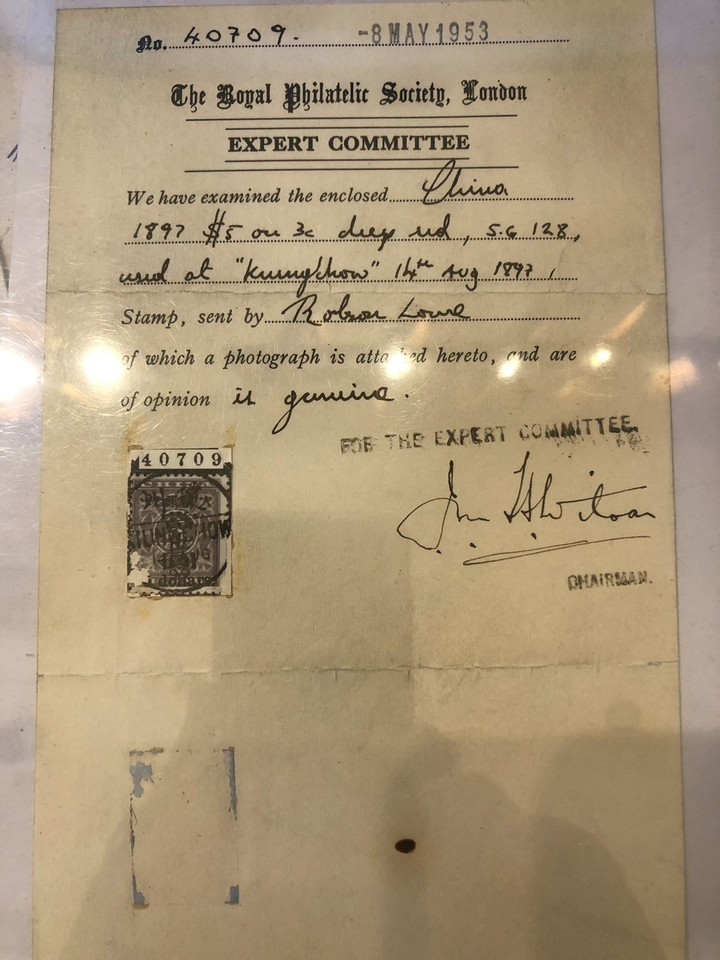 No. 40709. -8 MAY 1953
The Royal Philatelic Society, London
EXPERT COMMITTEE
We have examined the enclosed China
1897 $5 on 3c deep red, S.G 128,
used at "Kiungchow" 14th Aug 1897,
Stamp, sent by Robson Lowe
of which a photograph is attached hereto, and are
of opinion it genuine.
FOR THE EXPERT COMMITTEE.
CHAIRMAN.
40709
dollars